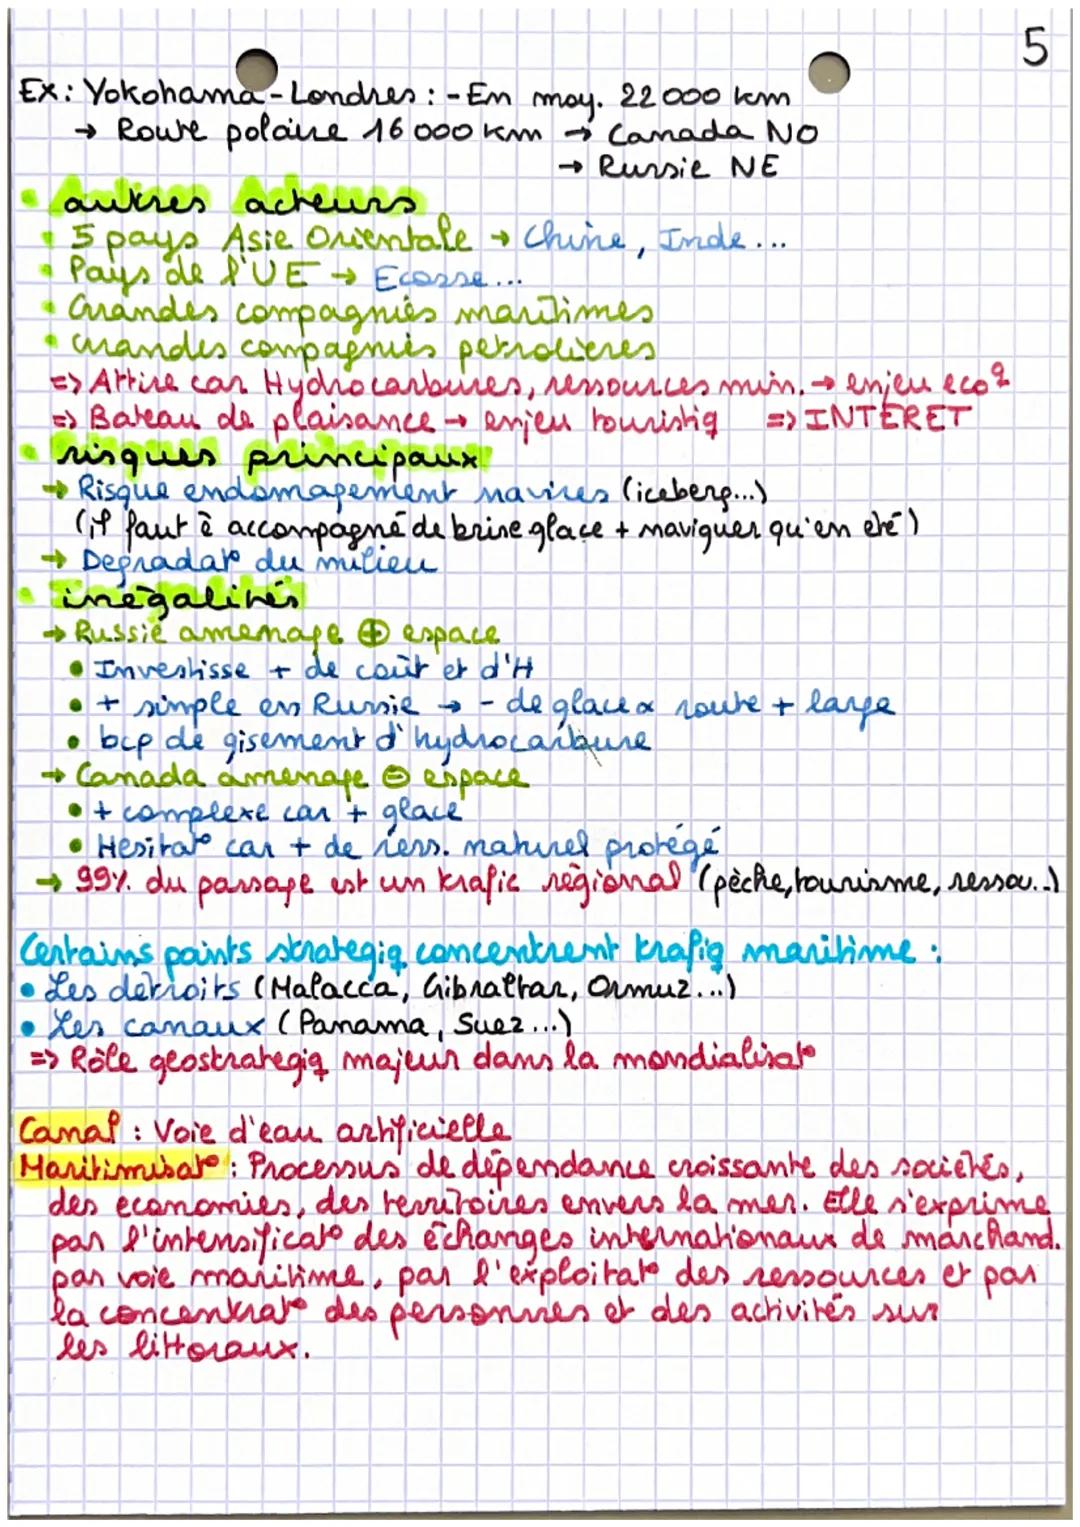 5
Ex: Yokohama - Londres : - En moy. 22 000 km
→ Route polaire 16 000 km → Canada NO
→ Russie NE
• autres acteurs
• 5 pays Asie Orientale → Chine, Inde...
• Pays de l'UE → Ecosse...
• Grandes compagnies maritimes
• Grandes compagnies petrolieres
=> Attire car Hydrocarbures, ressources min. → enjeu eco
=> Bateau de plaisance → enjeu touristiq => INTERET
• risques principaux
→ Risque endomagement navires (iceberg...)
(il faut ê accompagné de brise glace + naviguer qu'en eté)
→ Degradat° du milieu
• inégalités
→ Russie amenage ⊕ espace
• Investisse + de coût et d'H
• + simple en Russie → - de glace & route + large
• bcp de gisement d'hydrocarbure
→ Canada amenage ⊖ espace
• + complexe car + glace
• Hesitat° car + de ress. naturel protégé
→ 99% du passage est un trafic régional (pèche, tourisme, ressou..)
Certains points strategiq concentrent trafiq maritime :
• Les détroits (Malacca, Gibraltar, Ormuz...)
• Les canaux (Panama, Suez...)
=> Rôle geostrategiq majeur dans la mondialisat°
Canal : Voie d'eau artificielle
Maritimisat° : Processus de dépendance croissante des sociétés,
des economies, des territoires envers la mer. Elle s'exprime
par l'intensificat° des échanges internationaux de marchand.
par voie maritime, par l'exploitat° des ressources et par
la concentrat° des personnes et des activités sur
les littoraux.